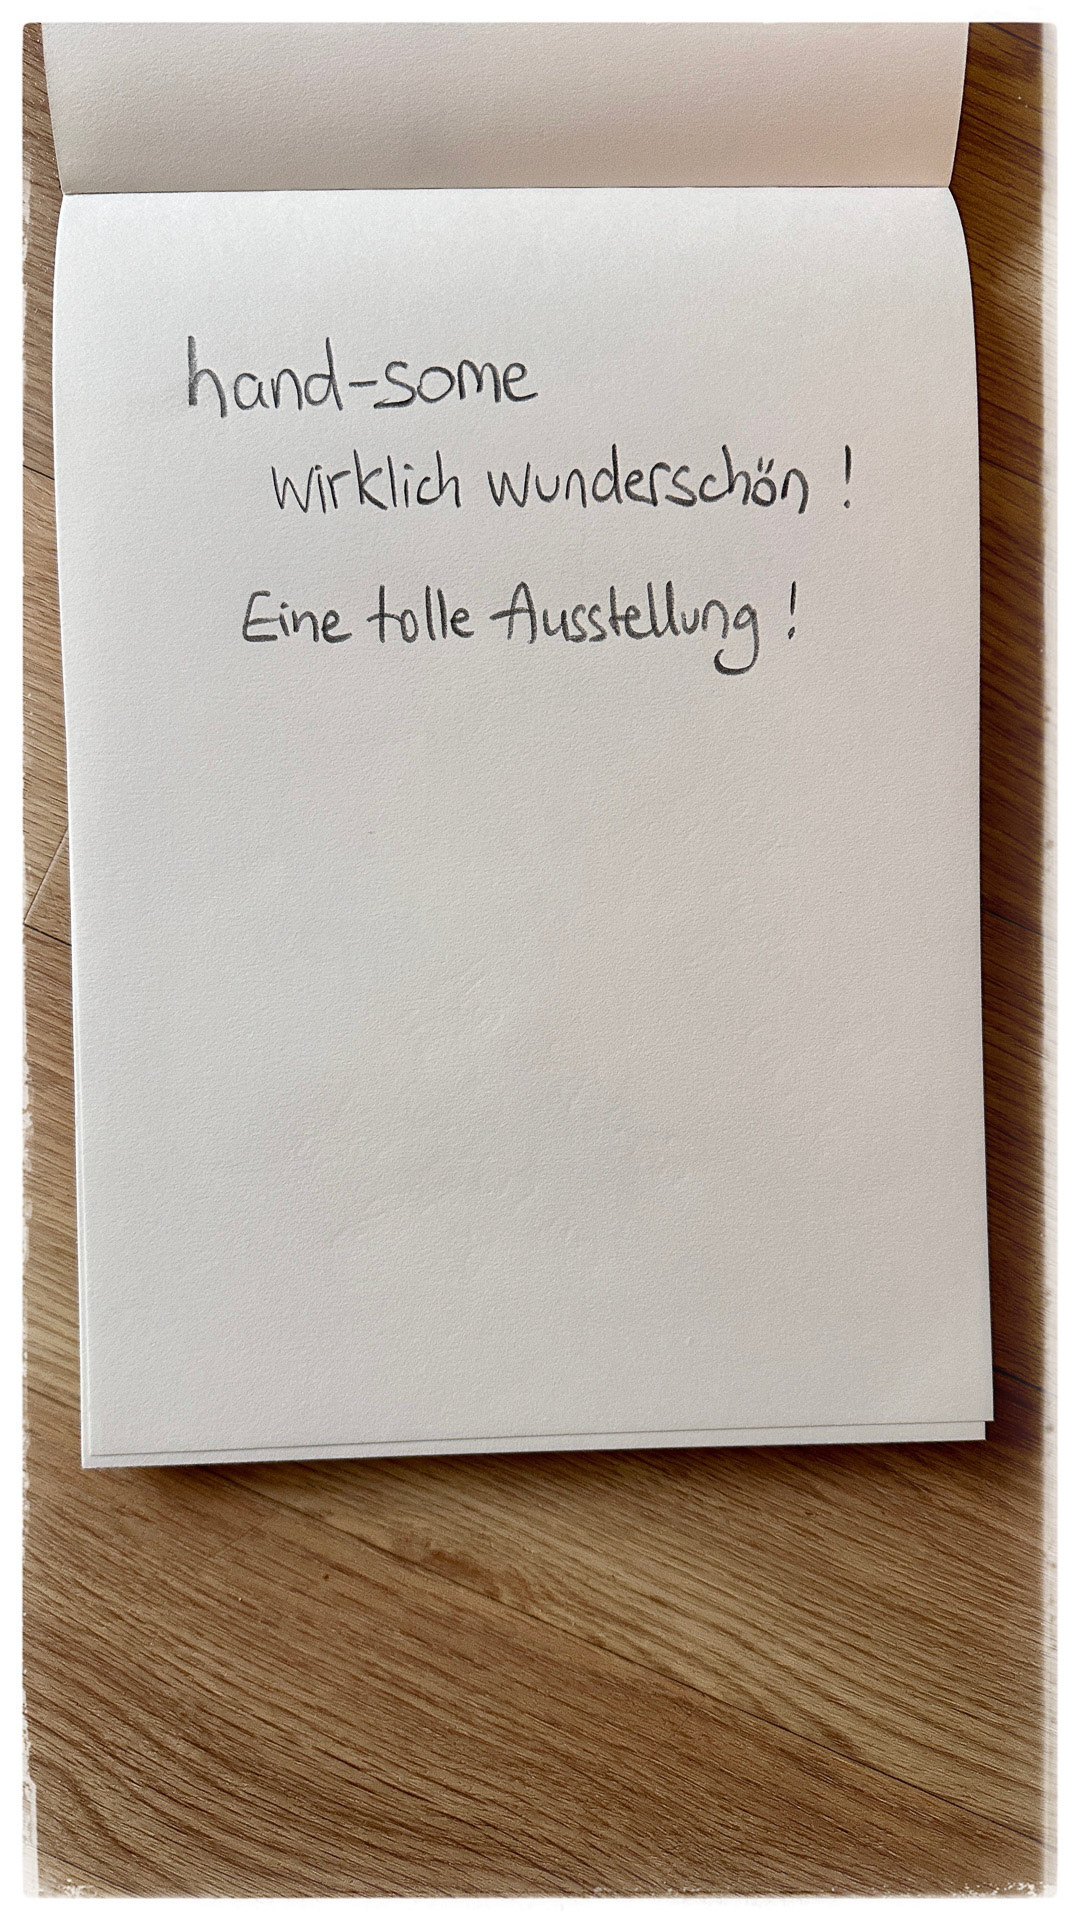 hand-some
wirklich wunderschön !
Eine tolle Ausstellung !